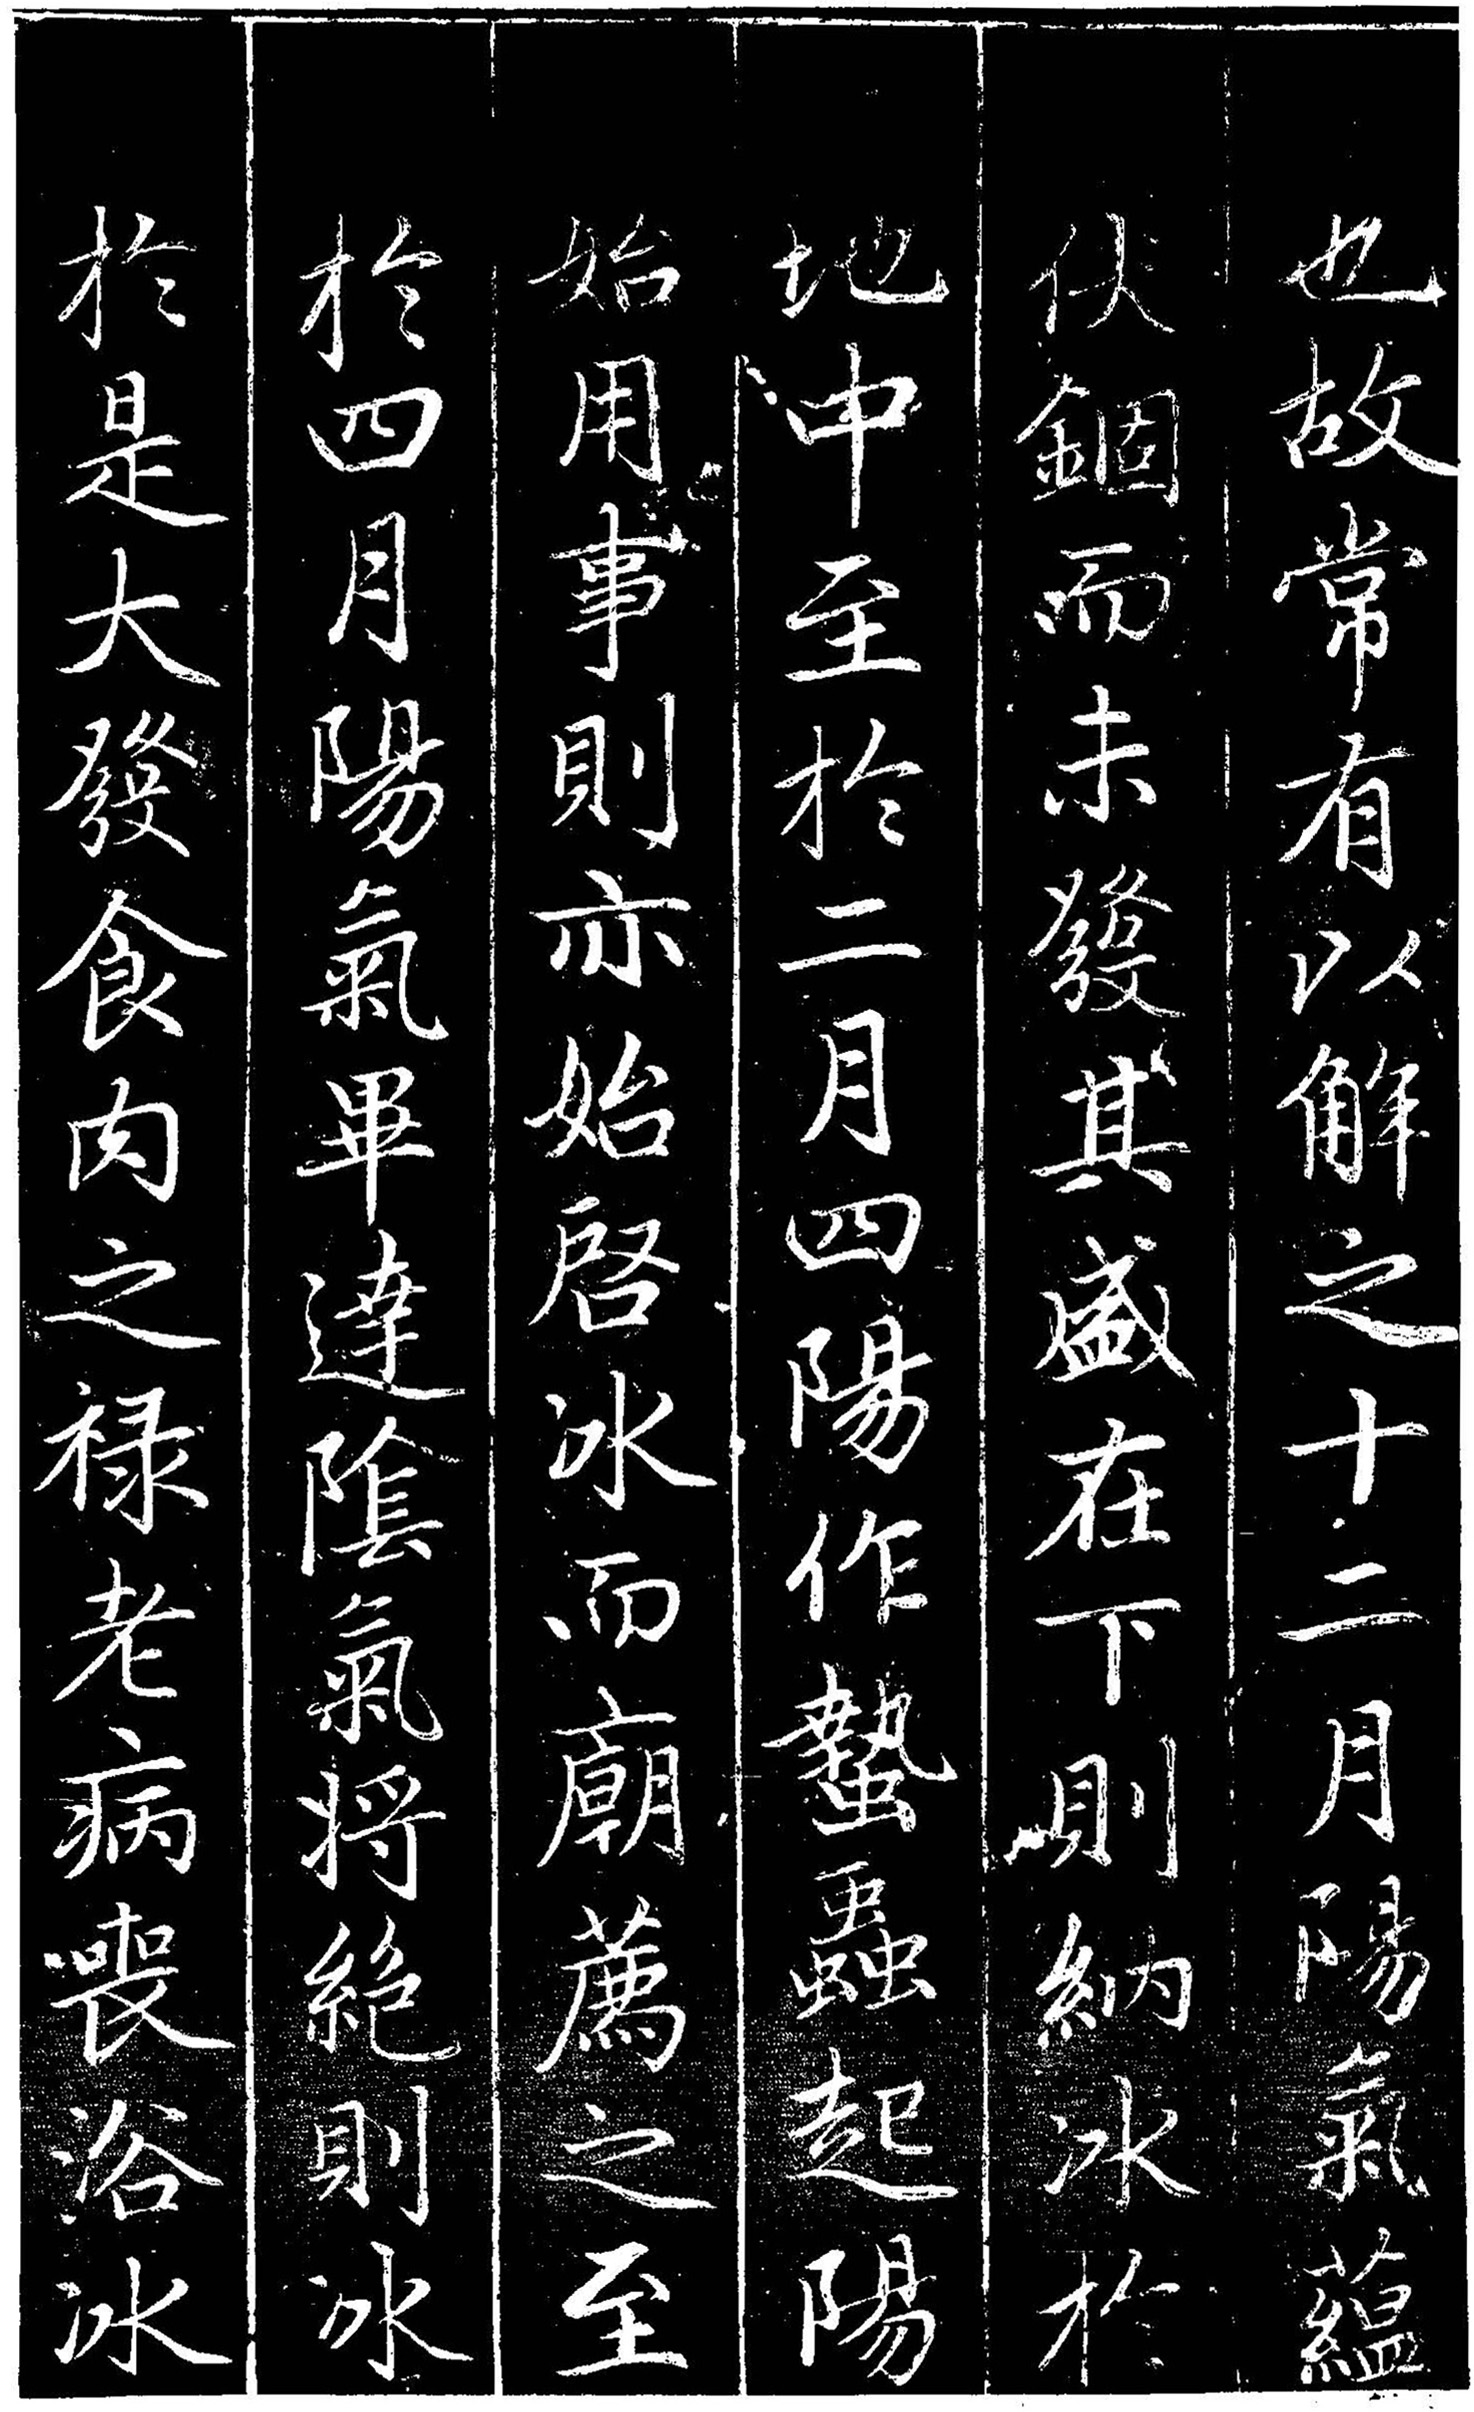 也故常有以解之十二月陽氣蘊
伏錮而未發其盛在下則納冰於
地中至於二月四陽作蟄蟲起陽
始用事則亦始啓冰而廟薦之至
於四月陽氣畢達陰氣將絶則冰
於是大發食肉之禄老病喪浴冰